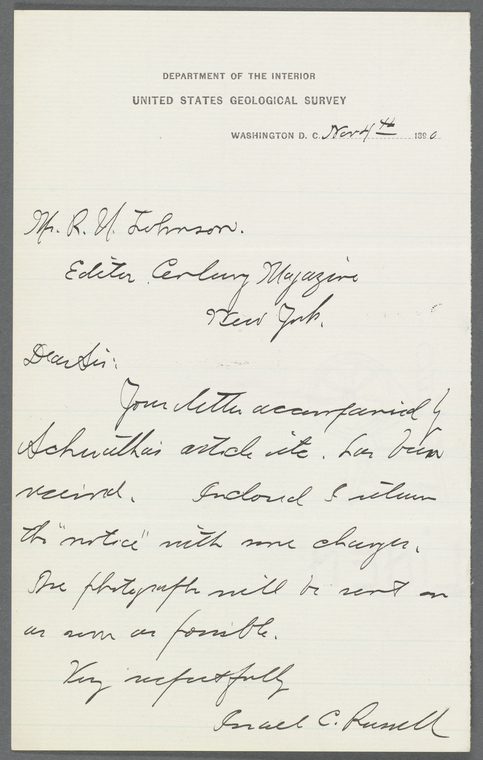 DEPARTMENT OF THE INTERIOR
UNITED STATES GEOLOGICAL SURVEY
WASHINGTON D. C. Nov 4th 1890.
Mr. R. U. Johnson.
Editor Century Magazine
New York.
Dear Sir:
Your letter accompanied by
Schwatka's article etc. has been
received. Inclosed I return
the "notice" with some changes.
The photographs will be sent on
as soon as possible.
Very respectfully
Israel C. Russell